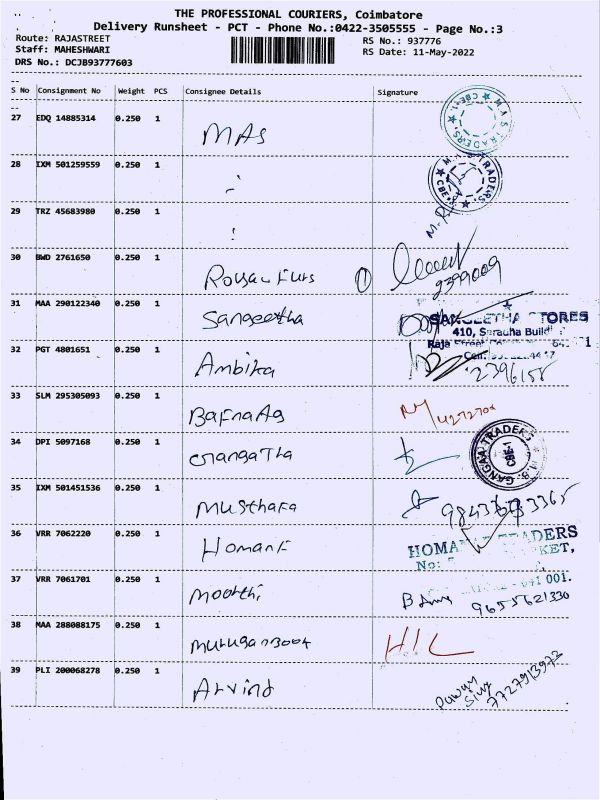 THE PROFESSIONAL COURIERS, Coimbatore
Delivery Runsheet - PCT - Phone No.:0422-3505555 - Page No.:3
Route: RAJASTREET
RS No.: 937776
Staff: MAHESHWARI
RS Date: 11-May-2022
DRS No.: DCJB93777603
S No Consignment No Weight PCS Consignee Details Signature
27 EDQ 14885314 0.250 1 MAS
M.A.S TRADERS, CBE-1.
28 IXM 501259559 0.250 1 "
TRADERS, CBE
29 TRZ 45683980 0.250 1 "
30 BWD 2761650 0.250 1 ①
2399009
31 MAA 290122340 0.250 1 Sangeetha
SANGEETHA STORES
410, Saradha Build
Raja Street
32 PGT 4801651 0.250 1 Ambika
2396158
33 SLM 295305093 0.250 1 Bafna Ag
34 DPI 5097168 0.250 1
GANGAA TRADERS CBE-1
35 IXM 501451536 0.250 1 Musthafa
36 VRR 7062220 0.250 1
TRADERS
No:
37 VRR 7061701 0.250 1 Moorthi
641 001.
9655621330
38 MAA 288088175 0.250 1 Murugan Book
39 PLI 200068278 0.250 1 Arvind
Pawan
7727913972